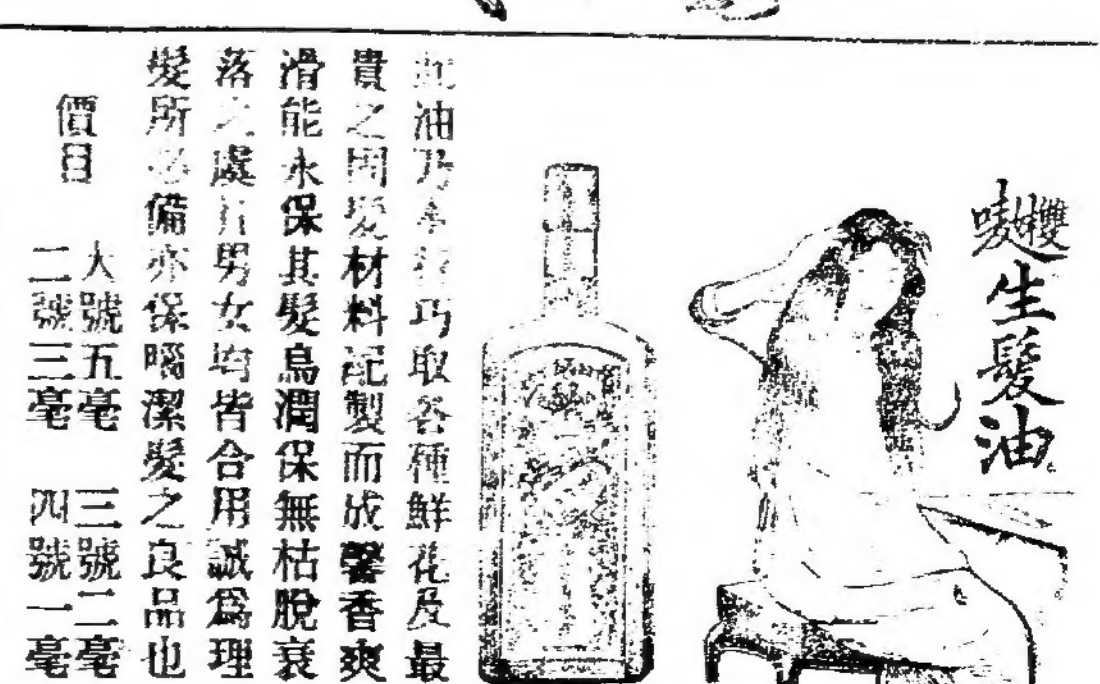 雙妹嘜
生髮油
油乃巧取各種鮮花及最
貴之固髮材料配製而成馨香爽
滑能永保其髮烏潤保無枯脫衰
落之虞凡男女均皆合用誠爲理
髮所必備亦保腦潔髮之良品也
價目
大號五毫 三號二毫
二號三毫 四號一毫